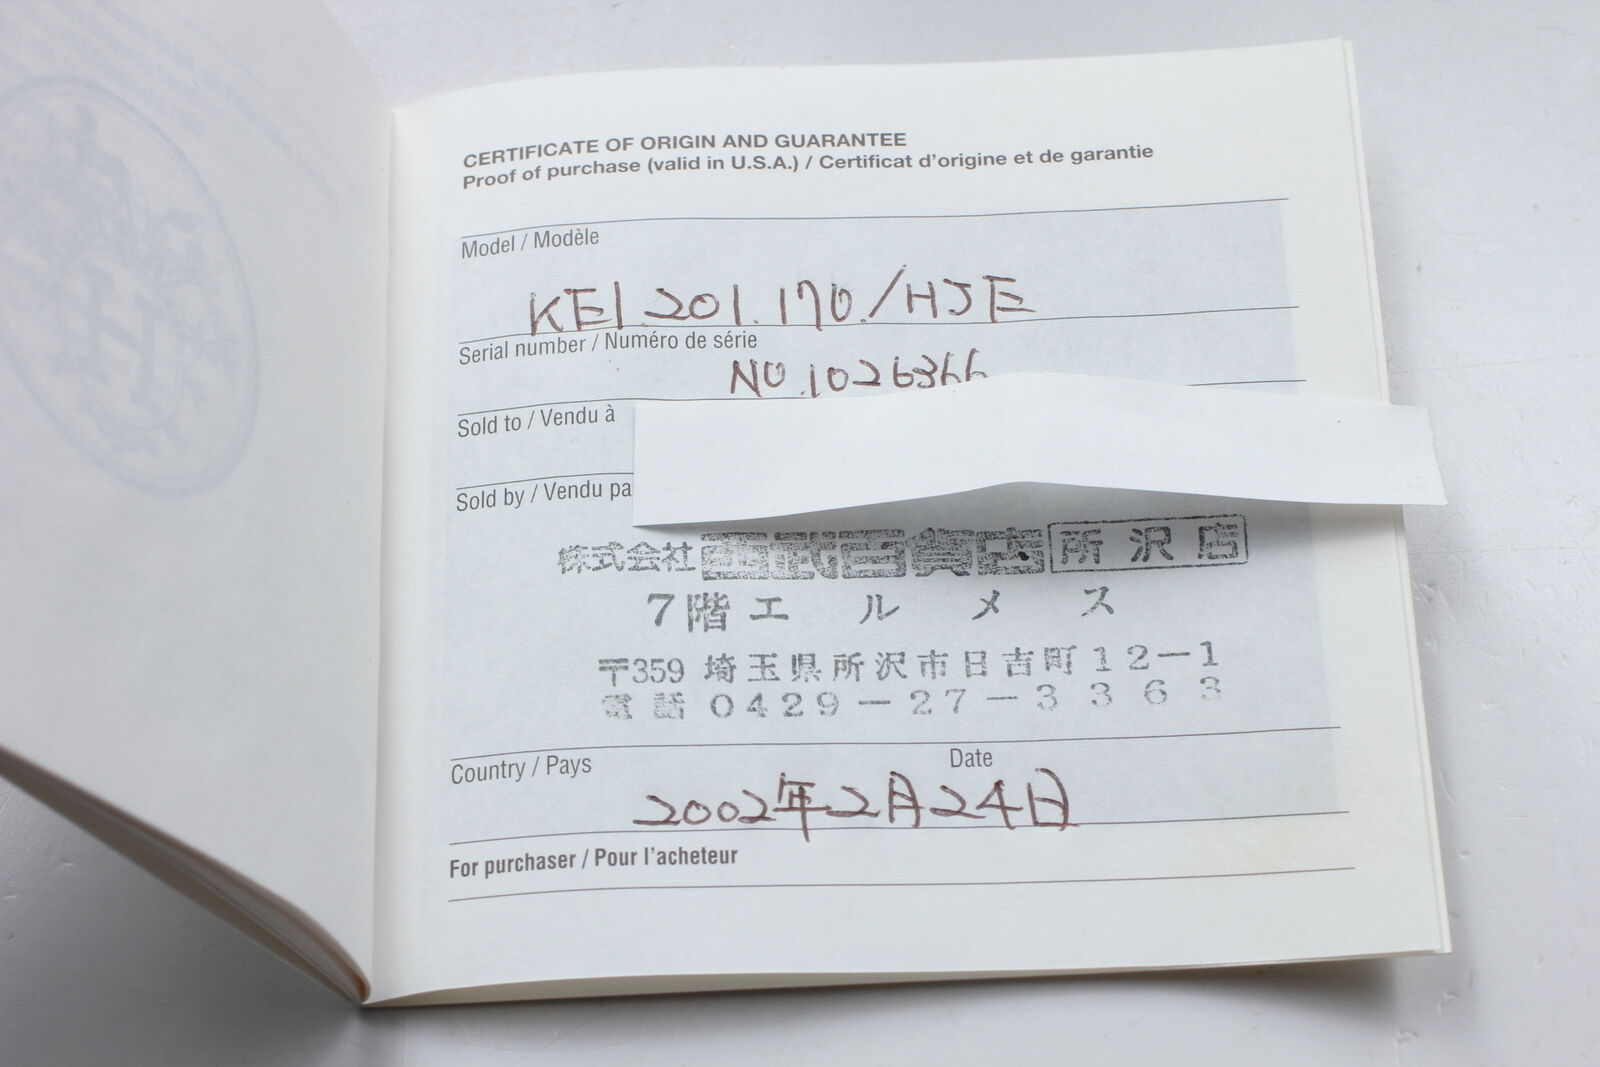 CERTIFICATE OF ORIGIN AND GUARANTEE
Proof of purchase (valid in U.S.A.) / Certificat d'origine et de garantie
Model / Modèle
KE1 201.170./HJE
Serial number / Numéro de série
NO.1026366
Sold to / Vendu à
Sold by / Vendu pa
株式会社 西武百貨店 所沢店
7階エルメス
〒359 埼玉県所沢市日吉町12-1
電話 0429-27-3363
Country / Pays
Date
2002年2月24日
For purchaser / Pour l'acheteur